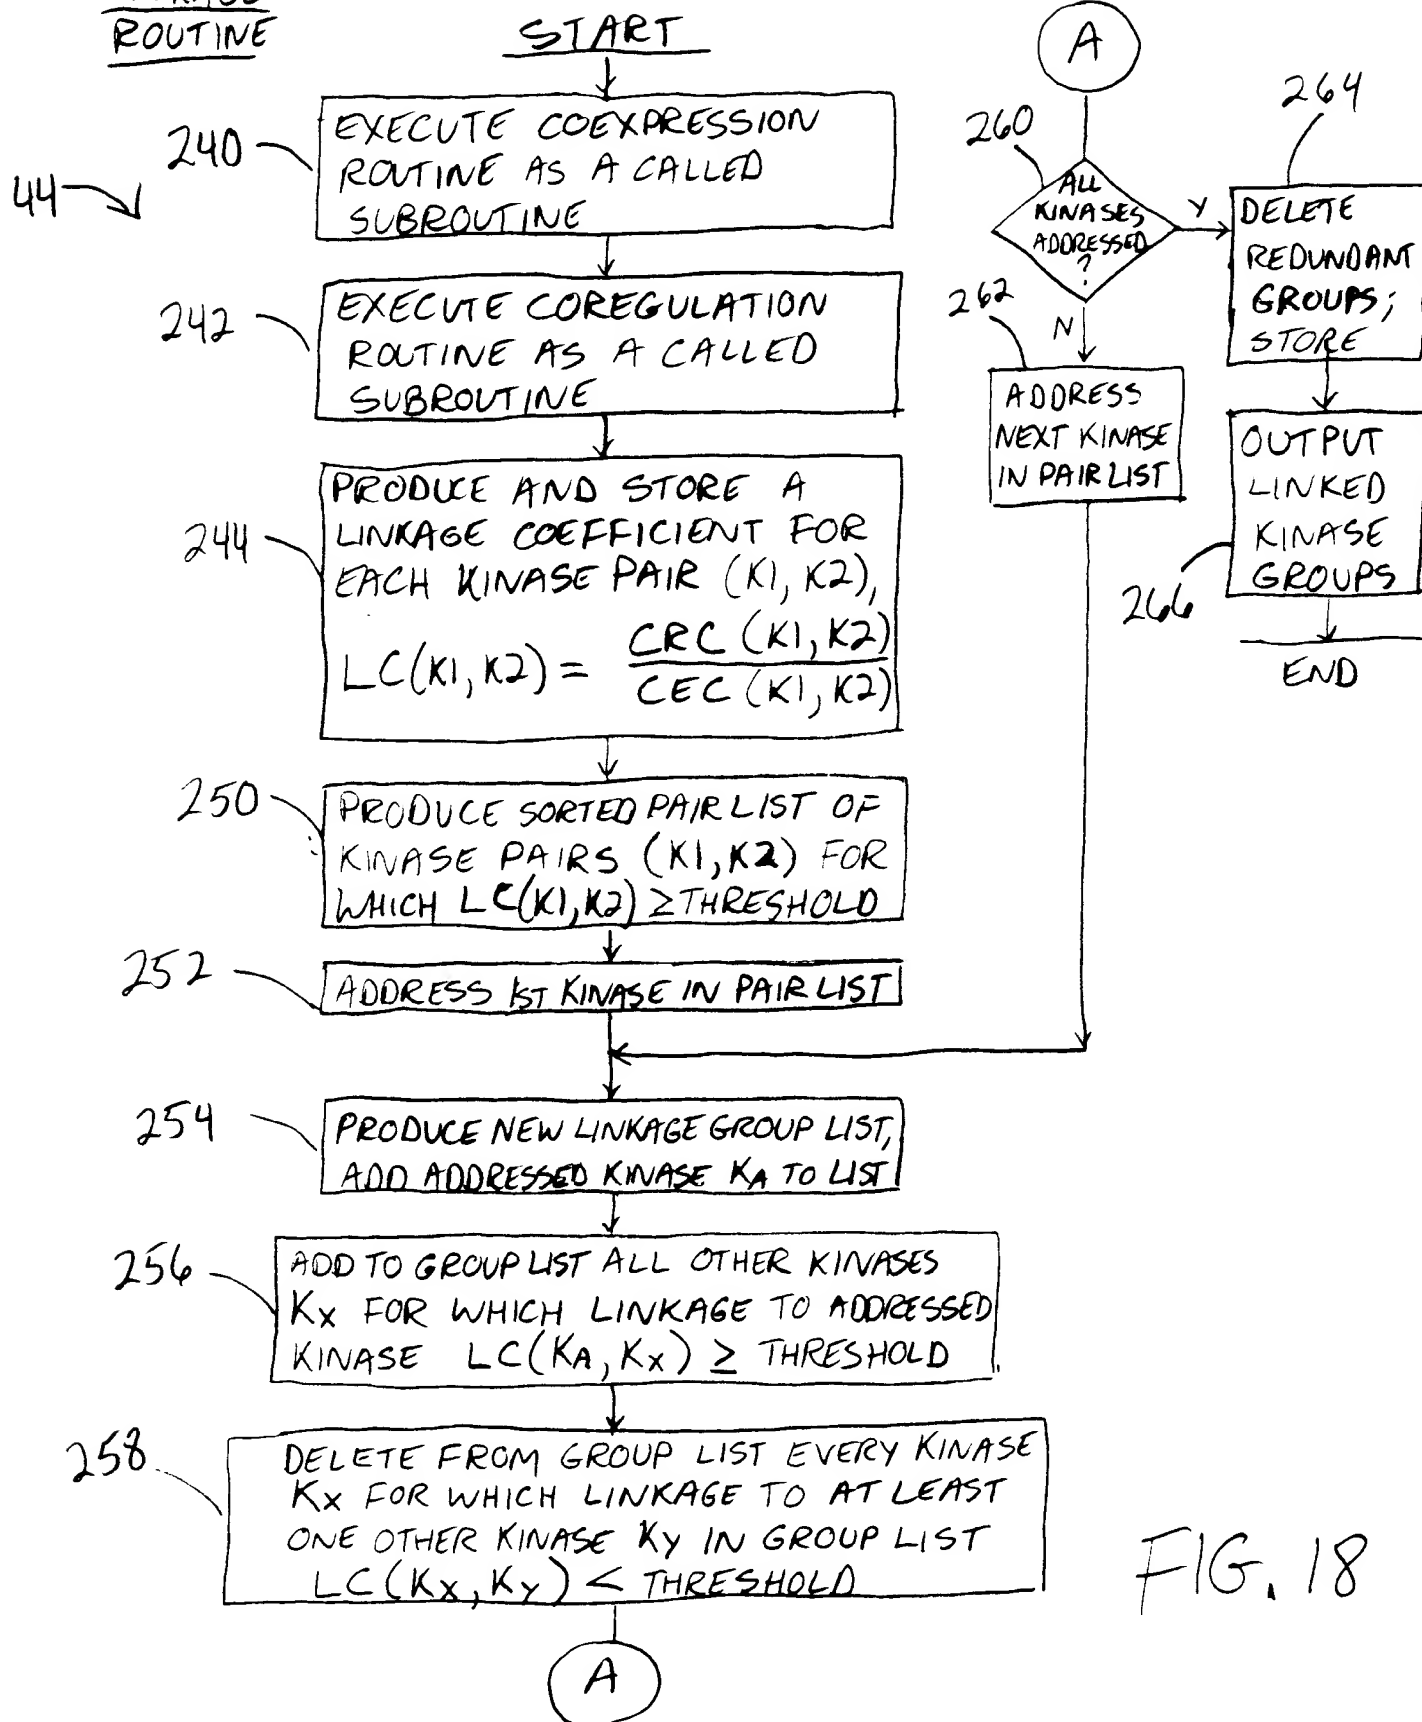 ROUTINE
START
240
EXECUTE COEXPRESSION
ROUTINE AS A CALLED
SUBROUTINE
44
242
EXECUTE COREGULATION
ROUTINE AS A CALLED
SUBROUTINE
244
PRODUCE AND STORE A
LINKAGE COEFFICIENT FOR
EACH KINASE PAIR (K1, K2),
LC(K1, K2) = CRC (K1, K2)
CEC (K1, K2)
250
PRODUCE SORTED PAIR LIST OF
KINASE PAIRS (K1, K2) FOR
WHICH LC(K1, K2) ≥ THRESHOLD
252
ADDRESS 1ST KINASE IN PAIR LIST
254
PRODUCE NEW LINKAGE GROUP LIST,
ADD ADDRESSED KINASE KA TO LIST
256
ADD TO GROUP LIST ALL OTHER KINASES
KX FOR WHICH LINKAGE TO ADDRESSED
KINASE LC(KA, KX) ≥ THRESHOLD
258
DELETE FROM GROUP LIST EVERY KINASE
KX FOR WHICH LINKAGE TO AT LEAST
ONE OTHER KINASE KY IN GROUP LIST
LC(KX, KY) < THRESHOLD
A
A
260
ALL
KINASES
ADDRESSED
?
Y
N
262
ADDRESS
NEXT KINASE
IN PAIR LIST
264
DELETE
REDUNDANT
GROUPS;
STORE
266
OUTPUT
LINKED
KINASE
GROUPS
END
FIG. 18